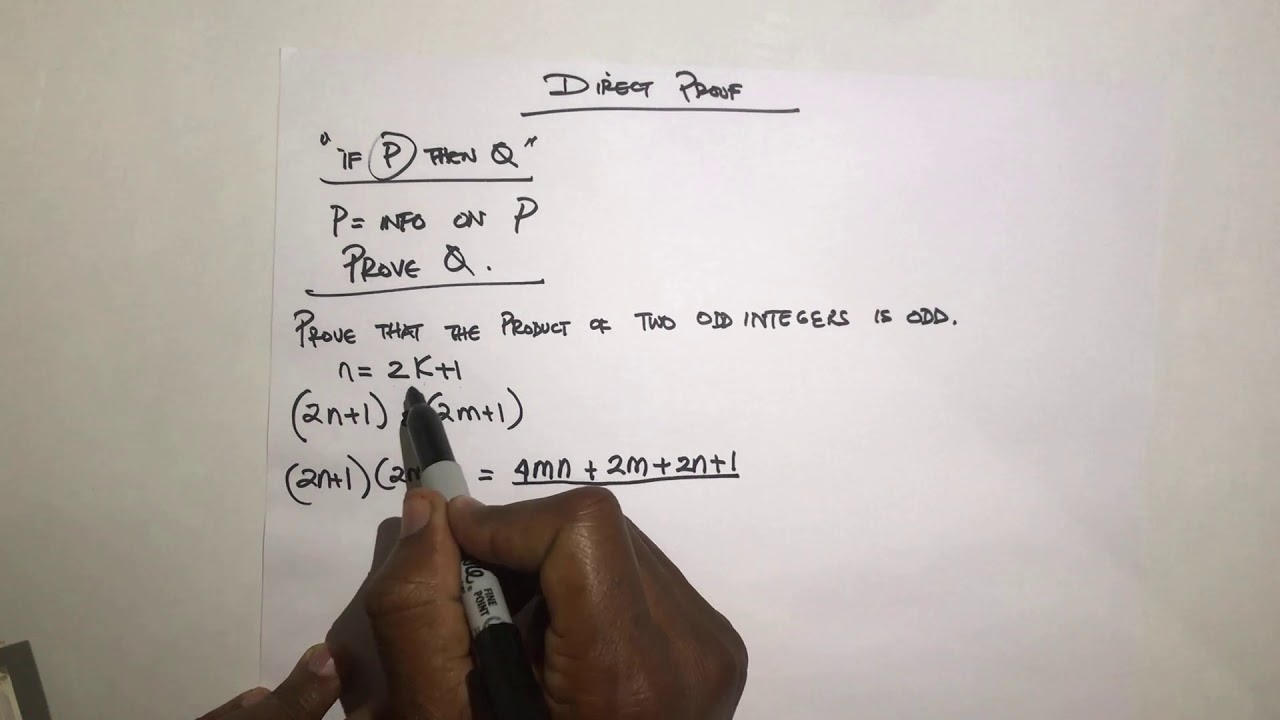 DIRECT PROOF
"IF P THEN Q"
P = INFO ON P
PROVE Q.
PROVE THAT THE PRODUCT OF TWO ODD INTEGERS IS ODD.
n = 2K+1
(2n+1) (2m+1)
(2n+1)(2 = 4mn + 2m + 2n + 1
FINE
POINT